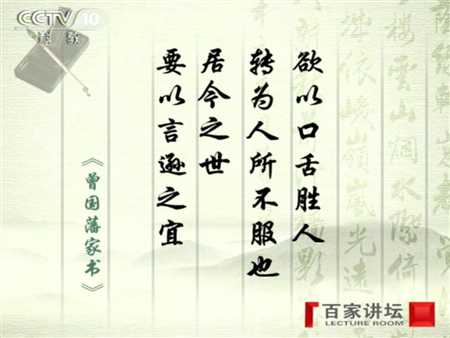 CCTV 10
科教
欲以口舌胜人
转为人所不服也
居今之世
要以言逊之宜
《曾国藩家书》
百家讲坛
LECTURE ROOM